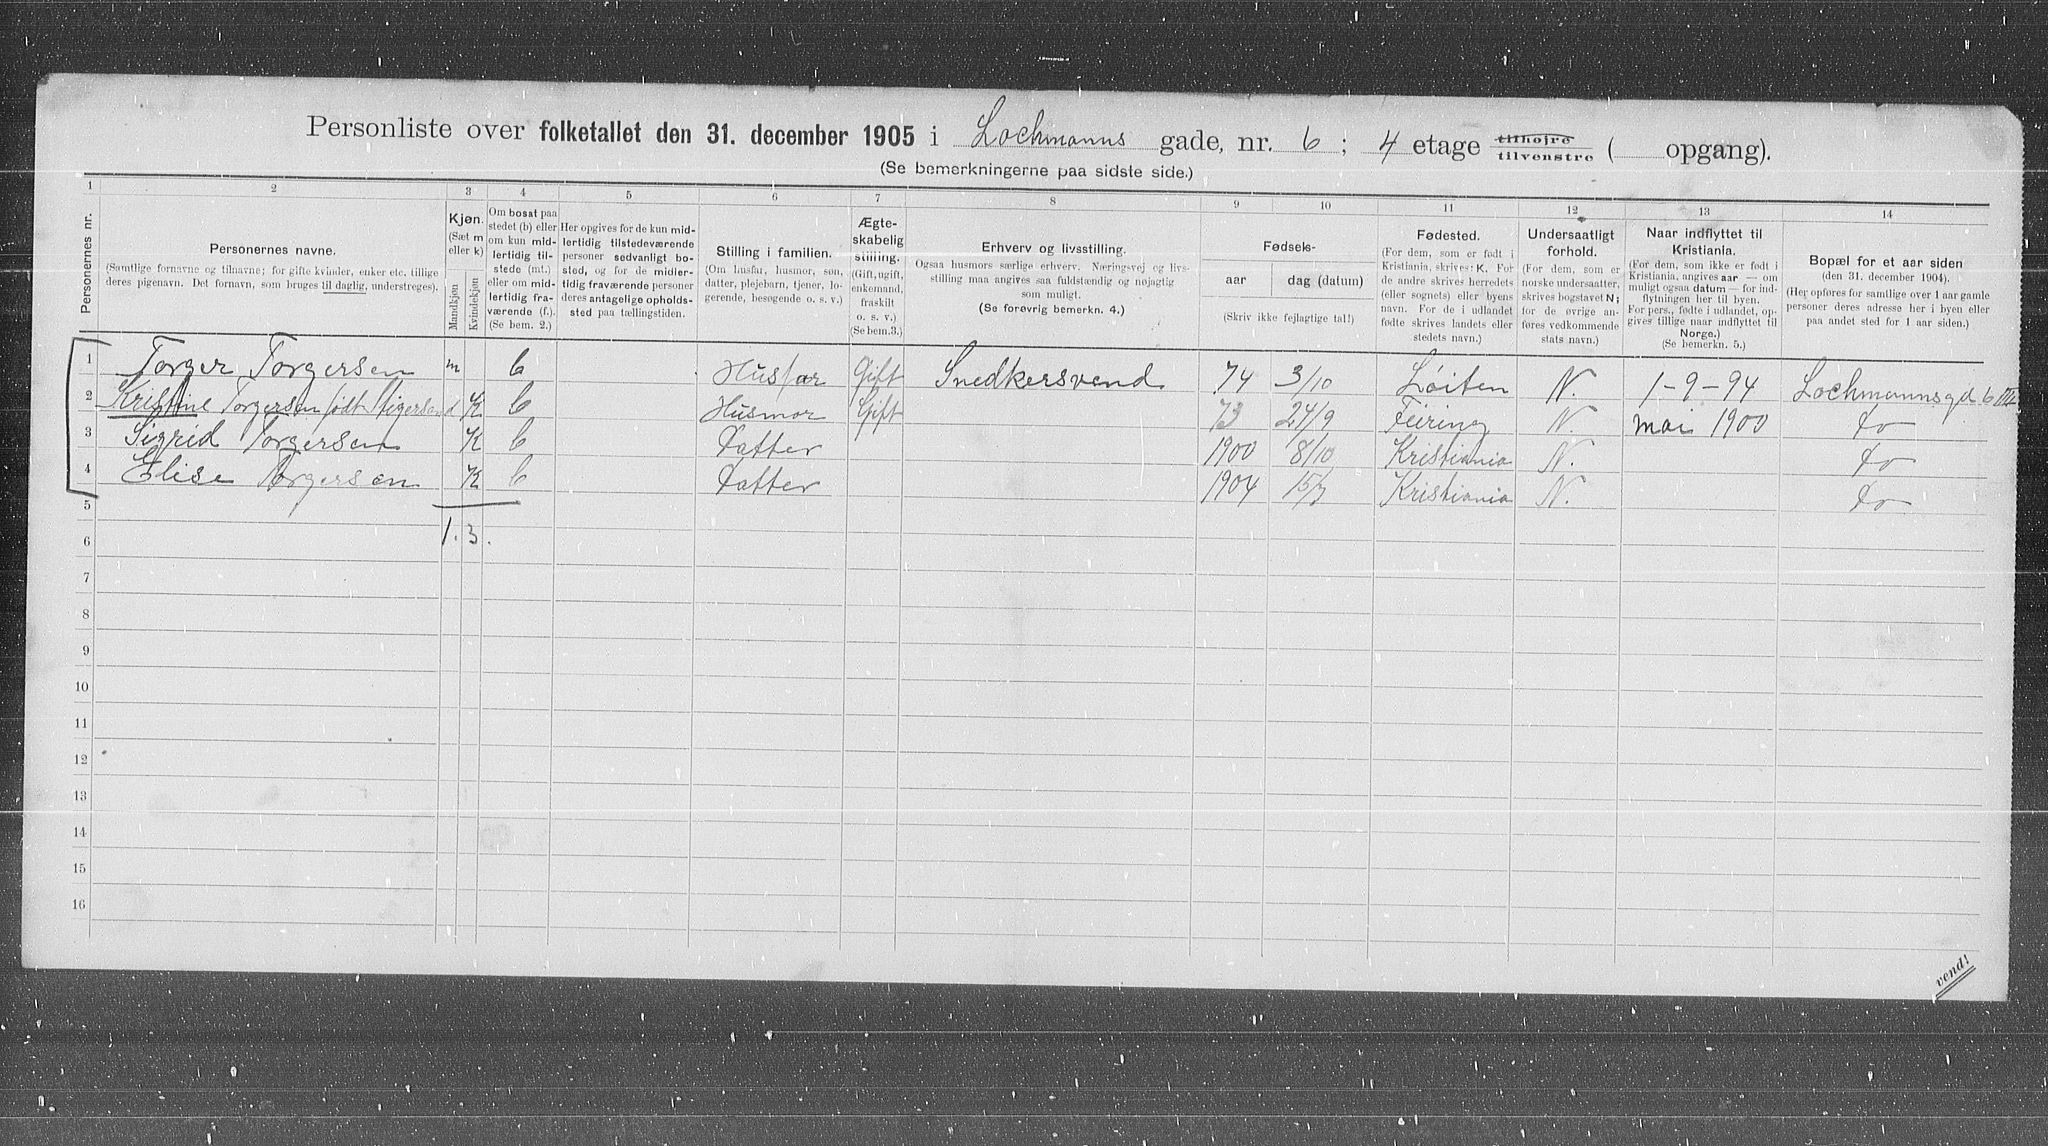 Personliste over folketallet den 31. december 1905 i Lochmanns gade, nr. 6; 4 etage tilhøjre tilvenstre ( opgang).
(Se bemerkningerne paa sidste side.)
1 2 3 4 5 6 7 8 9 10 11 12 13 14
Personernes nr.
Personernes navne.
(Samtlige fornavne og tilnavne; for gifte kvinder, enker etc. tillige
deres pigenavn. Det fornavn, som bruges til daglig, understreges).
Kjøn.
(Sæt m
eller k)
Mandkjøn
Kvindekjøn
Om bosat paa
stedet (b) eller
om kun mid-
lertidig til-
stede (mt.)
eller om mid-
lertidig fra-
værende (f.).
(Se bem. 2.)
Her opgives for de kun mid-
lertidig tilstedeværende
personer sedvanligt bo-
sted, og for de midler-
tidig fraværende personer
deres antagelige opholds-
sted paa tællingstiden.
Stilling i familien.
(Om husfar, husmor, søn,
datter, plejebarn, tjener, lo-
gerende, besøgende o. s. v.)
Ægte-
skabelig
stilling.
(Gift, ugift,
enkemand,
fraskilt
o. s. v.)
(Se bem.3.)
Erhverv og livsstilling.
Ogsaa husmors særlige erhverv. Næringsvej og livs-
stilling maa angives saa fuldstændig og nøjagtig
som muligt.
(Se forøvrig bemerkn. 4.)
Fødsels-
aar dag (datum)
(Skriv ikke fejlagtige tal!)
Fødested.
(For dem, som er født i
Kristiania, skrives: K. For
de andre skrives herredets
(eller sognets) eller byens
navn. For de i udlandet
fødte skrives landets eller
stedets navn.)
Undersaatligt
forhold.
(For dem, som er
norske undersaatter,
skrives bogstavet N;
for de øvrige an-
føres vedkommende
stats navn.)
Naar indflyttet til
Kristiania.
(For dem, som ikke er født i
Kristiania, angives aar — om
muligt ogsaa datum — for ind-
flytningen her til byen.
For pers., fødte i udlandet, op-
gives tillige naar indflyttet til
Norge.)
(Se bemerkn. 5.)
Bopæl for et aar siden
(den 31. december 1904).
(Her opføres for samtlige over 1 aar gamle
personer deres adresse her i byen eller
paa andet sted for 1 aar siden.)
1 Torger Torgersen m b Husfar Gift Snedkersvend 74 3/10 Løiten N. 1-9-94 Lochmannsgd 6 III
2 Kristine Torgersen født K b Husmor Gift 73 24/9 Feiring N. mai 1900 do
3 Sigrid Torgersen K b Datter 1900 8/10 Kristiania N. do
4 Elise Torgersen K b Datter 1904 15/7 Kristiania N. do
5
1. 3.
6
7
8
9
10
11
12
13
14
15
16
vend!